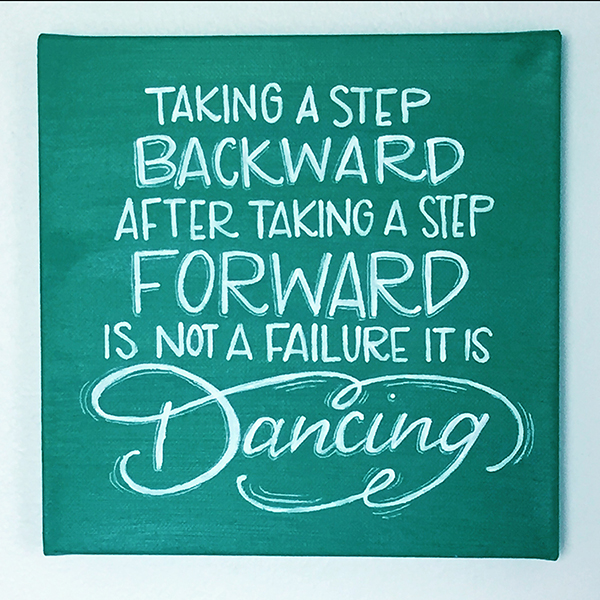 TAKING A STEP
BACKWARD
AFTER TAKING A STEP
FORWARD
IS NOT A FAILURE IT IS
Dancing